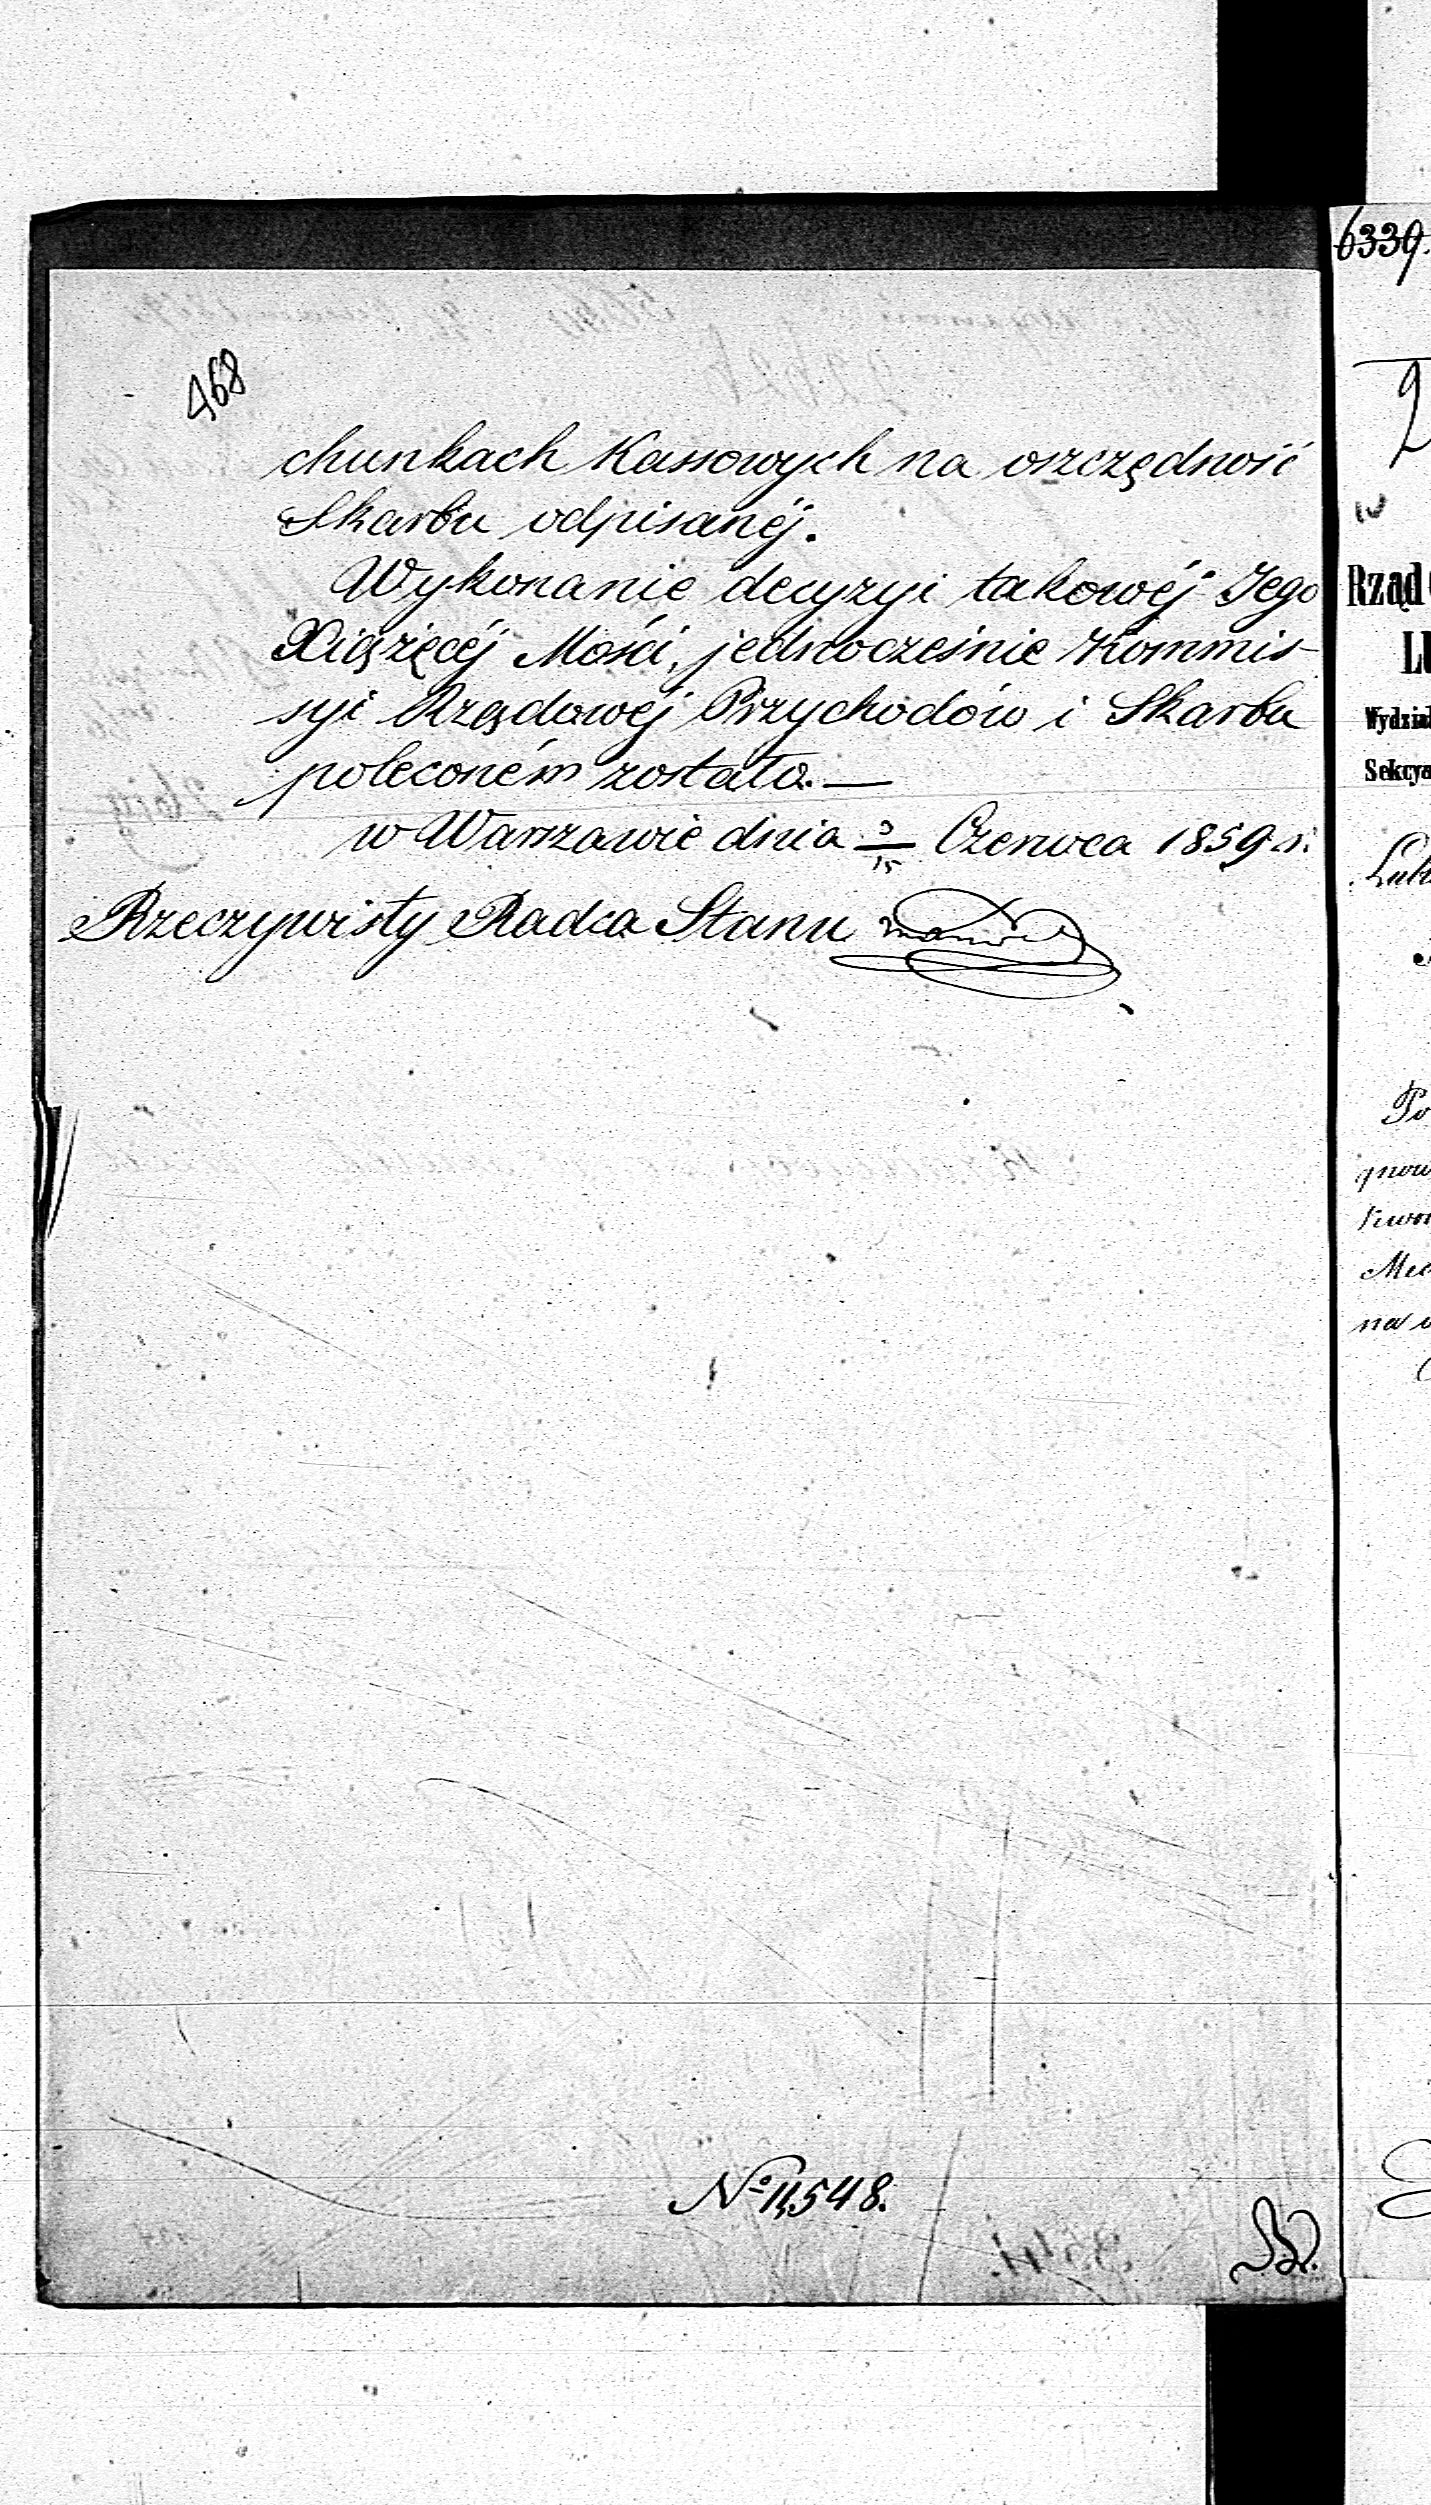 468
chunkach Kassowych na oszczędność
Skarbu odpisanéj.
Wykonanie decyzyi takowéj Jego
Xiążęcéj Mości, jednocześnie Kommis-
syi Rządowéj Przychodów i Skarbu
poleconém zostało.—
w Warszawie dnia 3/15 Czerwca 1859 r.
Rzeczywisty Radca Stanu
№ 11,548.
6339.
Rząd
Wydział
Sekcya